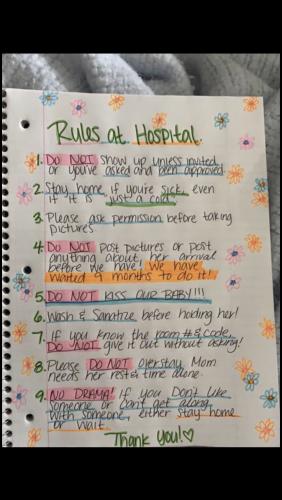 Rules at Hospital.
1. DO NOT show up unless invited
or you've asked and been approved.
2. Stay home if you're sick, even
if it is just a cold.
3. Please ask permission before taking
pictures
4. DO NOT post pictures or post
anything about her arrival
before we have! We have
waited 9 months to do it!
5. DO NOT KISS OUR BABY!!!
6. Wash & Sanatize before holding her!
7. If you know the room # & code,
DO NOT give it out without asking!
8. Please DO NOT overstay. Mom
needs her rest & time alone.
9. NO DRAMA! If you Don't like
someone or can't get along
with someone, either stay home
or wait.
Thank You!♡